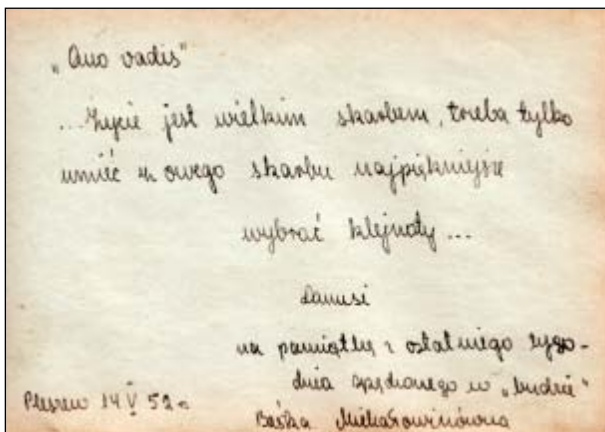 „Quo vadis”
...Życie jest wielkim skarbem, trzeba tylko
umieć z owego skarbu najpiękniejsze
wybrać klejnoty...
Danusi
na pamiątkę z ostatniego tygo-
dnia spędzonego w „budzie”
Pleszew 14 V 52 r.
Baśka